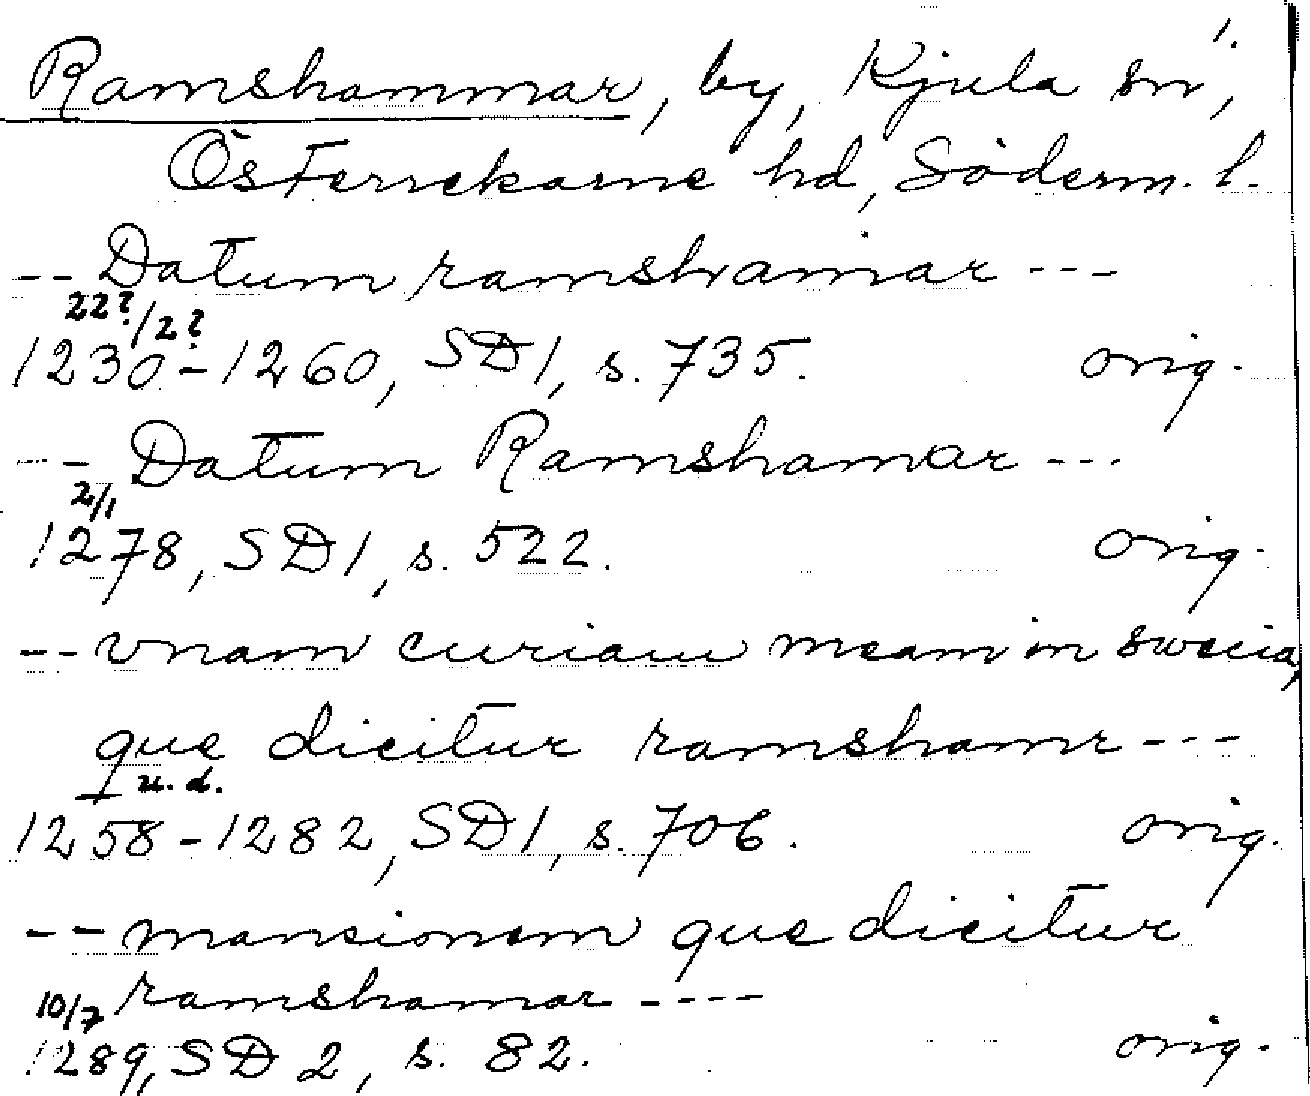 1.
Ramshammar, by, Kjula sn,
Österrekarne hd, Söderm. l.
-- Datum ramshamar ---
22?/2?
1230-1260, SD1, s. 735. orig.
--- Datum Ramshamar ---
2/1
1278, SD1, s. 522. orig.
-- vnam curiam meam in swecia,
que dicitur ramshamr ---
u. d.
1258-1282, SD1, s. 706. orig.
-- mansionem que dicitur
10/7 ramshamar ----
1289, SD 2, s. 82. orig.